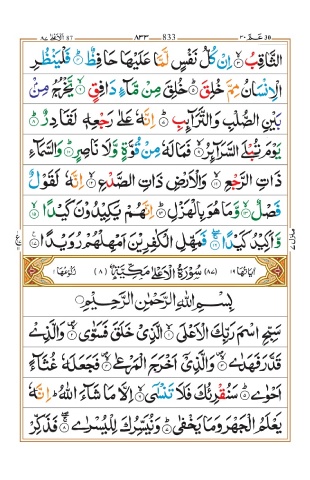 الاعلى ٨٧ ٨٣٣ 833 عمّ ٣٠
الثَّاقِبُ ۙ﴿٣﴾ اِنْ كُلُّ نَفْسٍ لَّمَّا عَلَيْهَا حَافِظٌ ؕ﴿٤﴾ فَلْيَنْظُرِ
الْاِنْسَانُ مِمَّ خُلِقَ ؕ﴿٥﴾ خُلِقَ مِنْ مَّآءٍ دَافِقٍ ۙ﴿٦﴾ يَّخْرُجُ مِنْۢ
بَيْنِ الصُّلْبِ وَالتَّرَآئِبِ ؕ﴿٧﴾ اِنَّهٗ عَلٰى رَجْعِهٖ لَقَادِرٌ ؕ﴿٨﴾
يَوْمَ تُبْلَى السَّرَآئِرُ ۙ﴿٩﴾ فَمَا لَهٗ مِنْ قُوَّةٍ وَّلَا نَاصِرٍ ؕ﴿١٠﴾ وَالسَّمَآءِ
ذَاتِ الرَّجْعِ ۙ﴿١١﴾ وَالْاَرْضِ ذَاتِ الصَّدْعِ ۙ﴿١٢﴾ اِنَّهٗ لَقَوْلٌ
فَصْلٌ ۙ﴿١٣﴾ وَّمَا هُوَ بِالْهَزْلِ ؕ﴿١٤﴾ اِنَّهُمْ يَكِيْدُوْنَ كَيْدًا ۙ﴿١٥﴾
وَّاَكِيْدُ كَيْدًا ۚۖ﴿١٦﴾ فَمَهِّلِ الْكٰفِرِيْنَ اَمْهِلْهُمْ رُوَيْدًا ﴿١٧﴾
اٰيَاتُهَا ١٩ (٨٧) سُوْرَةُ الْاَعْلٰى مَكِّيَّةٌ (٨) رُكُوْعُهَا ١
بِسْمِ اللّٰهِ الرَّحْمٰنِ الرَّحِيْمِ
سَبِّحِ اسْمَ رَبِّكَ الْاَعْلَى ۙ﴿١﴾ الَّذِيْ خَلَقَ فَسَوّٰى ۙ﴿٢﴾ وَالَّذِيْ
قَدَّرَ فَهَدٰى ۙ﴿٣﴾ وَالَّذِيْۤ اَخْرَجَ الْمَرْعٰى ۙ﴿٤﴾ فَجَعَلَهٗ غُثَآءً
اَحْوٰى ؕ﴿٥﴾ سَنُقْرِئُكَ فَلَا تَنْسٰۤى ۙ﴿٦﴾ اِلَّا مَا شَآءَ اللّٰهُ ؕ اِنَّهٗ
يَعْلَمُ الْجَهْرَ وَمَا يَخْفٰى ؕ﴿٧﴾ وَنُيَسِّرُكَ لِلْيُسْرٰى ۚۖ﴿٨﴾ فَذَكِّرْ